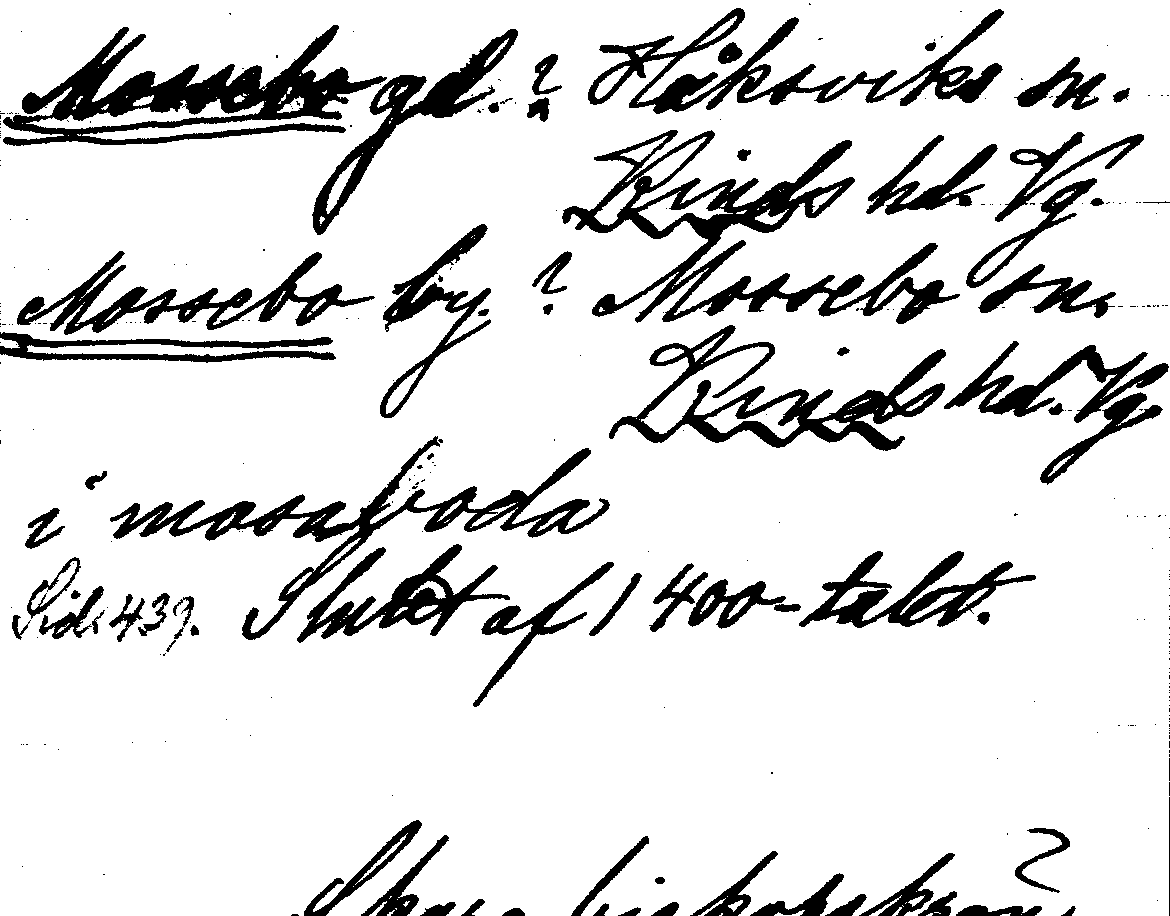 Mossebo gd. ? Håksviks sn.
Kinds hd. Vg.
Mossebo by. ? Mossebo sn.
Kinds hd. Vg.
i mosaboda
Sid. 439. Slutet af 1400-talet.
Skara